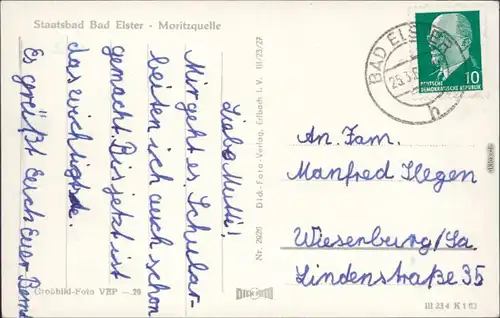 Staatsbad Bad Elster - Moritzquelle
Liebe Mutti!
Mir geht es, Schular-
beiten ich auch schon
gemacht. Bis jetzt ist
das wichtigste.
Es grüßt Euch Euer Bernd
Großbild-Foto VEP -.20
Nr. 2920 Dick-Foto-Verlag, Erlbach i. V. III/23/27
DICK FOTO
BAD ELSTER
h
10
DEUTSCHE
DEMOKRATISCHE REPUBLIK
An Fam.
Manfred Ilgen
Wiesenburg/Sa.
Lindenstraße 35
III 23 4 K 1 63